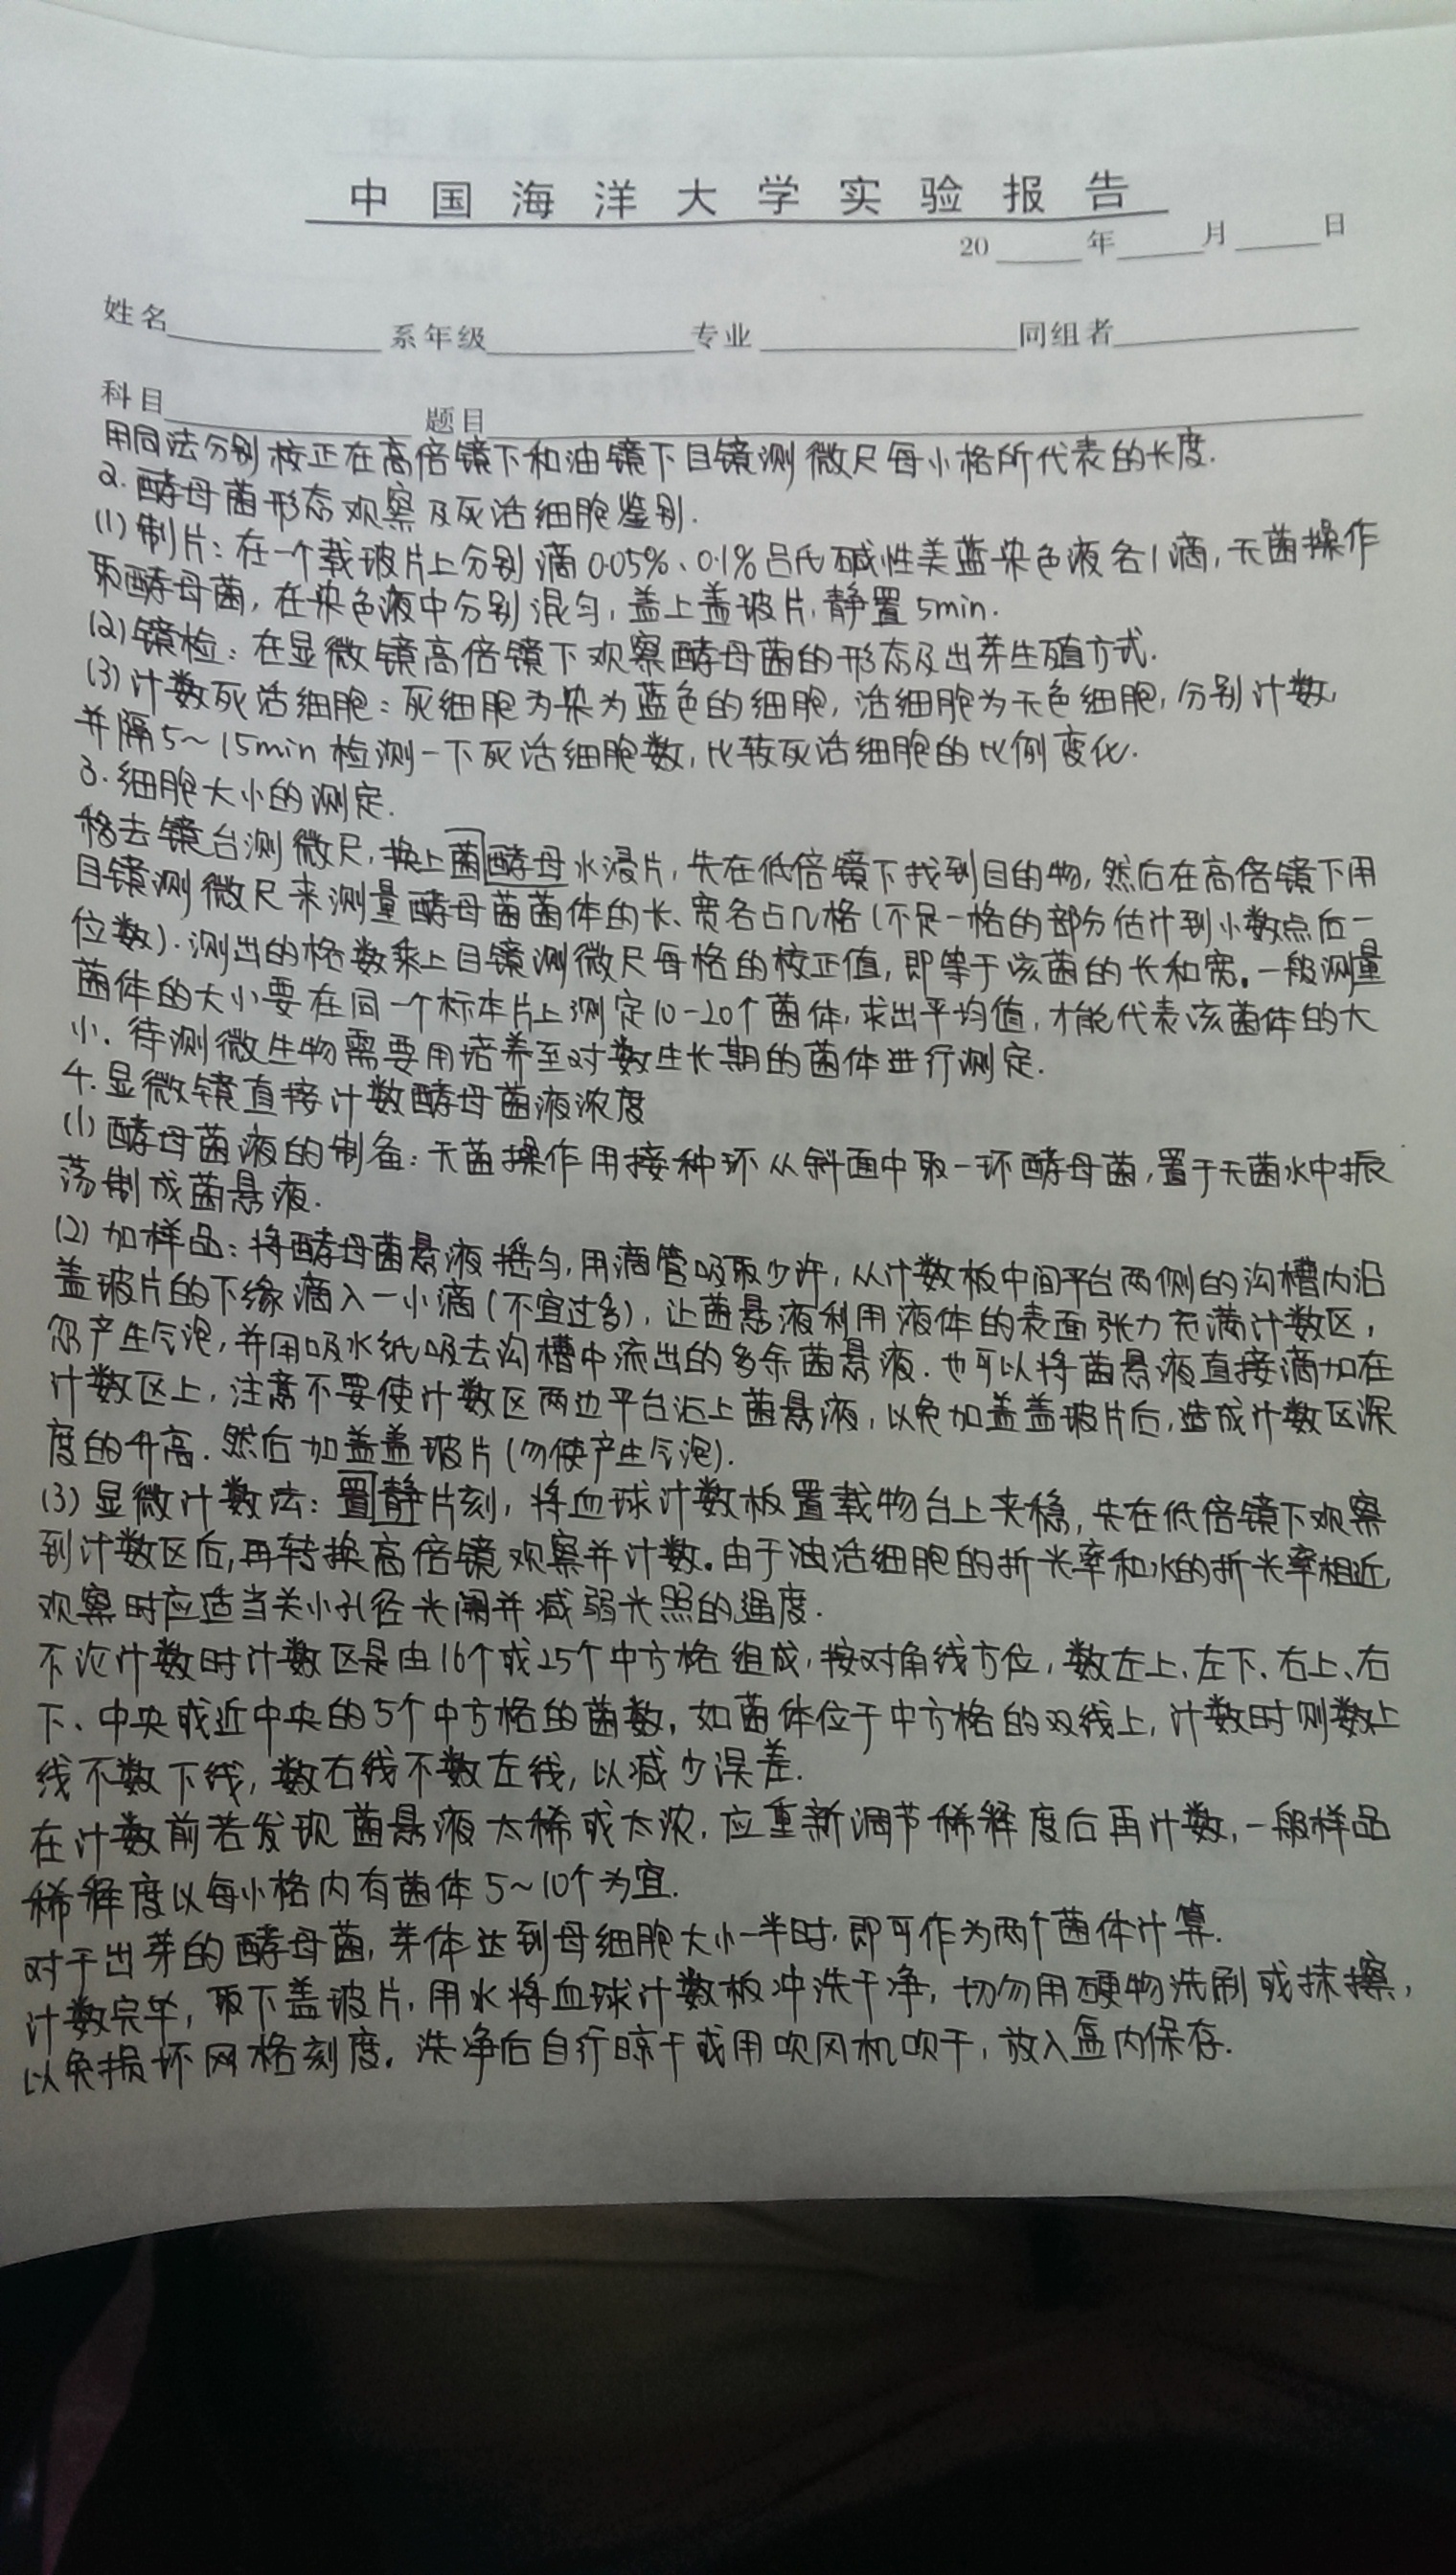 中国海洋大学实验报告
20 年 月 日
姓名 系年级 专业 同组者
科目 题目
用同法分别校正在高倍镜下和油镜下目镜测微尺每小格所代表的长度.
2. 酵母菌形态观察及死活细胞鉴别.
(1) 制片：在一个载玻片上分别滴0.05%、0.1%吕氏碱性美蓝染色液各1滴, 无菌操作
取酵母菌, 在染色液中分别混匀, 盖上盖玻片, 静置5min.
(2) 镜检：在显微镜高倍镜下观察酵母菌的形态及出芽生殖方式.
(3) 计数死活细胞：死细胞为染为蓝色的细胞, 活细胞为无色细胞, 分别计数,
并隔5~15min检测一下死活细胞数, 比较死活细胞的比例变化.
3. 细胞大小的测定.
移去镜台测微尺, 换上菌酵母水浸片, 先在低倍镜下找到目的物, 然后在高倍镜下用
目镜测微尺来测量酵母菌菌体的长、宽各占几格(不足一格的部分估计到小数点后一
位数). 测出的格数乘上目镜测微尺每格的校正值, 即等于该菌的长和宽。一般测量
菌体的大小要在同一个标本片上测定10-20个菌体, 求出平均值, 才能代表该菌体的大
小. 待测微生物需要用培养至对数生长期的菌体进行测定.
4. 显微镜直接计数酵母菌液浓度
(1) 酵母菌液的制备：无菌操作用接种环从斜面中取一环酵母菌, 置于无菌水中振
荡制成菌悬液.
(2) 加样品：将酵母菌悬液摇匀, 用滴管吸取少许, 从计数板中间平台两侧的沟槽内沿
盖玻片的下缘滴入一小滴(不宜过多), 让菌悬液利用液体的表面张力充满计数区,
勿产生气泡, 并用吸水纸吸去沟槽中流出的多余菌悬液. 也可以将菌悬液直接滴加在
计数区上, 注意不要使计数区两边平台沾上菌悬液, 以免加盖盖玻片后, 造成计数区深
度的升高. 然后加盖盖玻片(勿使产生气泡).
(3) 显微计数法：置静片刻, 将血球计数板置载物台上夹稳, 先在低倍镜下观察
到计数区后, 再转换高倍镜观察并计数。由于油活细胞的折光率和水的折光率相近,
观察时应适当关小孔径光阑并减弱光照的强度.
不论计数时计数区是由16个或25个中方格组成, 按对角线方位, 数左上、左下、右上、右
下、中央或近中央的5个中方格的菌数. 如菌体位于中方格的双线上, 计数时则数上
线不数下线, 数右线不数左线, 以减少误差.
在计数前若发现菌悬液太稀或太浓, 应重新调节稀释度后再计数, 一般样品
稀释度以每小格内有菌体5~10个为宜.
对于出芽的酵母菌, 芽体达到母细胞大小一半时, 即可作为两个菌体计算.
计数完毕, 取下盖玻片, 用水将血球计数板冲洗干净, 切勿用硬物洗刷或抹擦,
以免损坏网格刻度. 洗净后自行晾干或用吹风机吹干, 放入盒内保存.